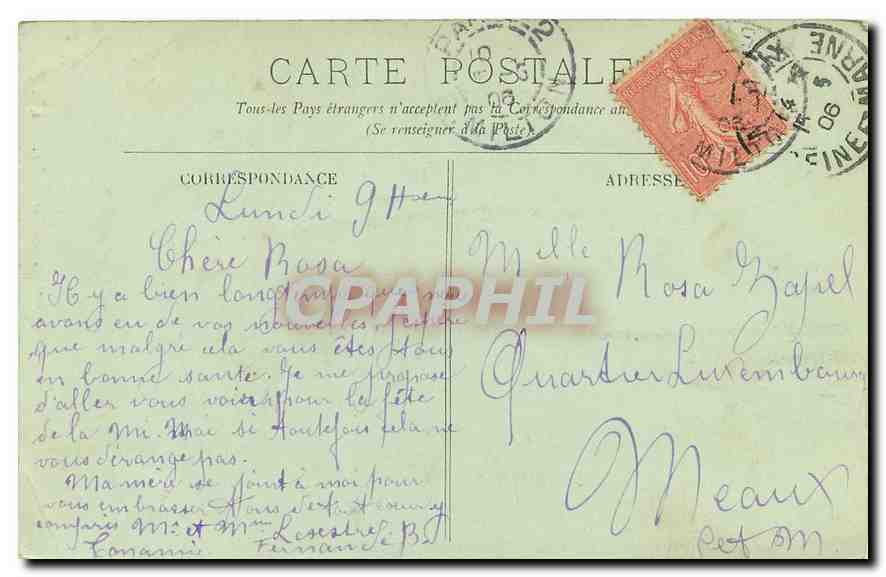 CARTE POSTALE
Tous-les Pays étrangers n'acceptent pas la Correspondance au
(Se renseigner à la Poste).
CORRESPONDANCE
Lundi 9
Chère Rosa
Il y a bien longtemps que
avons eu de vos nouvelles, j'espère
que malgré cela vous êtes tous
en bonne santé. Je me propose
d'aller vous voir pour la fête
de la Mi-Mai si toutefois cela ne
vous dérange pas.
Ma mère se joint à moi pour
vous embrasser tous
compris Mr et Mme Lesestre
Fernande B.
ADRESSE
Melle Rosa Zapel
Quartier Luxembourg
Meaux
S et M.
CPAPHIL
06
06
MARNE